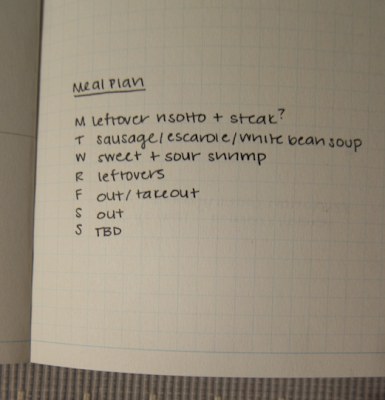 Meal Plan
M leftover risotto + steak?
T sausage/escarole/white bean soup
W sweet + sour shrimp
R leftovers
F out/takeout
S out
S TBD